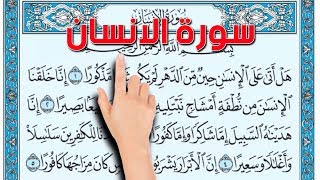 سورة الانسان
بِسْمِ ٱللَّهِ ٱلرَّحْمَٰنِ ٱلرَّحِيمِ
هَلْ أَتَىٰ عَلَى ٱلْإِنسَٰنِ حِينٌ مِّنَ ٱلدَّهْرِ لَمْ يَكُن مَّذْكُورًا ١ إِنَّا خَلَقْنَا
ٱلْإِنسَٰنَ مِن نُّطْفَةٍ أَمْشَاجٍ نَّبْتَلِيهِ بَصِيرًا ٢ إِنَّا
هَدَيْنَٰهُ ٱلسَّبِيلَ إِمَّا شَاكِرًا وَإِمَّا كَفُورًا لِلْكَٰفِرِينَ سَلَٰسِلَا۟
وَأَغْلَٰلًا وَسَعِيرًا ٤ إِنَّ ٱلْأَبْرَارَ يَشْرَبُونَ كَانَ مِزَاجُهَا كَافُورًا ٥